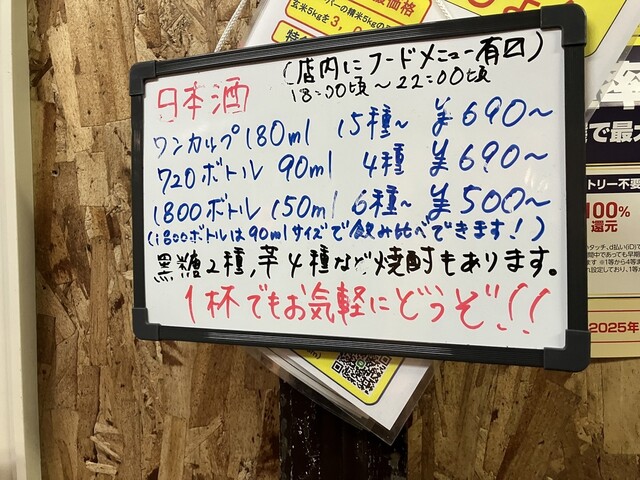 玄米5kgを3,
(店内にフードメニュー有り)
18:00頃～22:00頃
日本酒
ワンカップ 180ml 15種～ ¥690～
720ボトル 90ml 4種 ¥690～
1800ボトル 150ml 6種～ ¥500～
(1800ボトルは90mlサイズで飲み比べできます!)
黒糖2種,芋4種など焼酎もあります。
1杯でもお気軽にどうぞ!!
で最
トリー不要
100%
還元
2025年